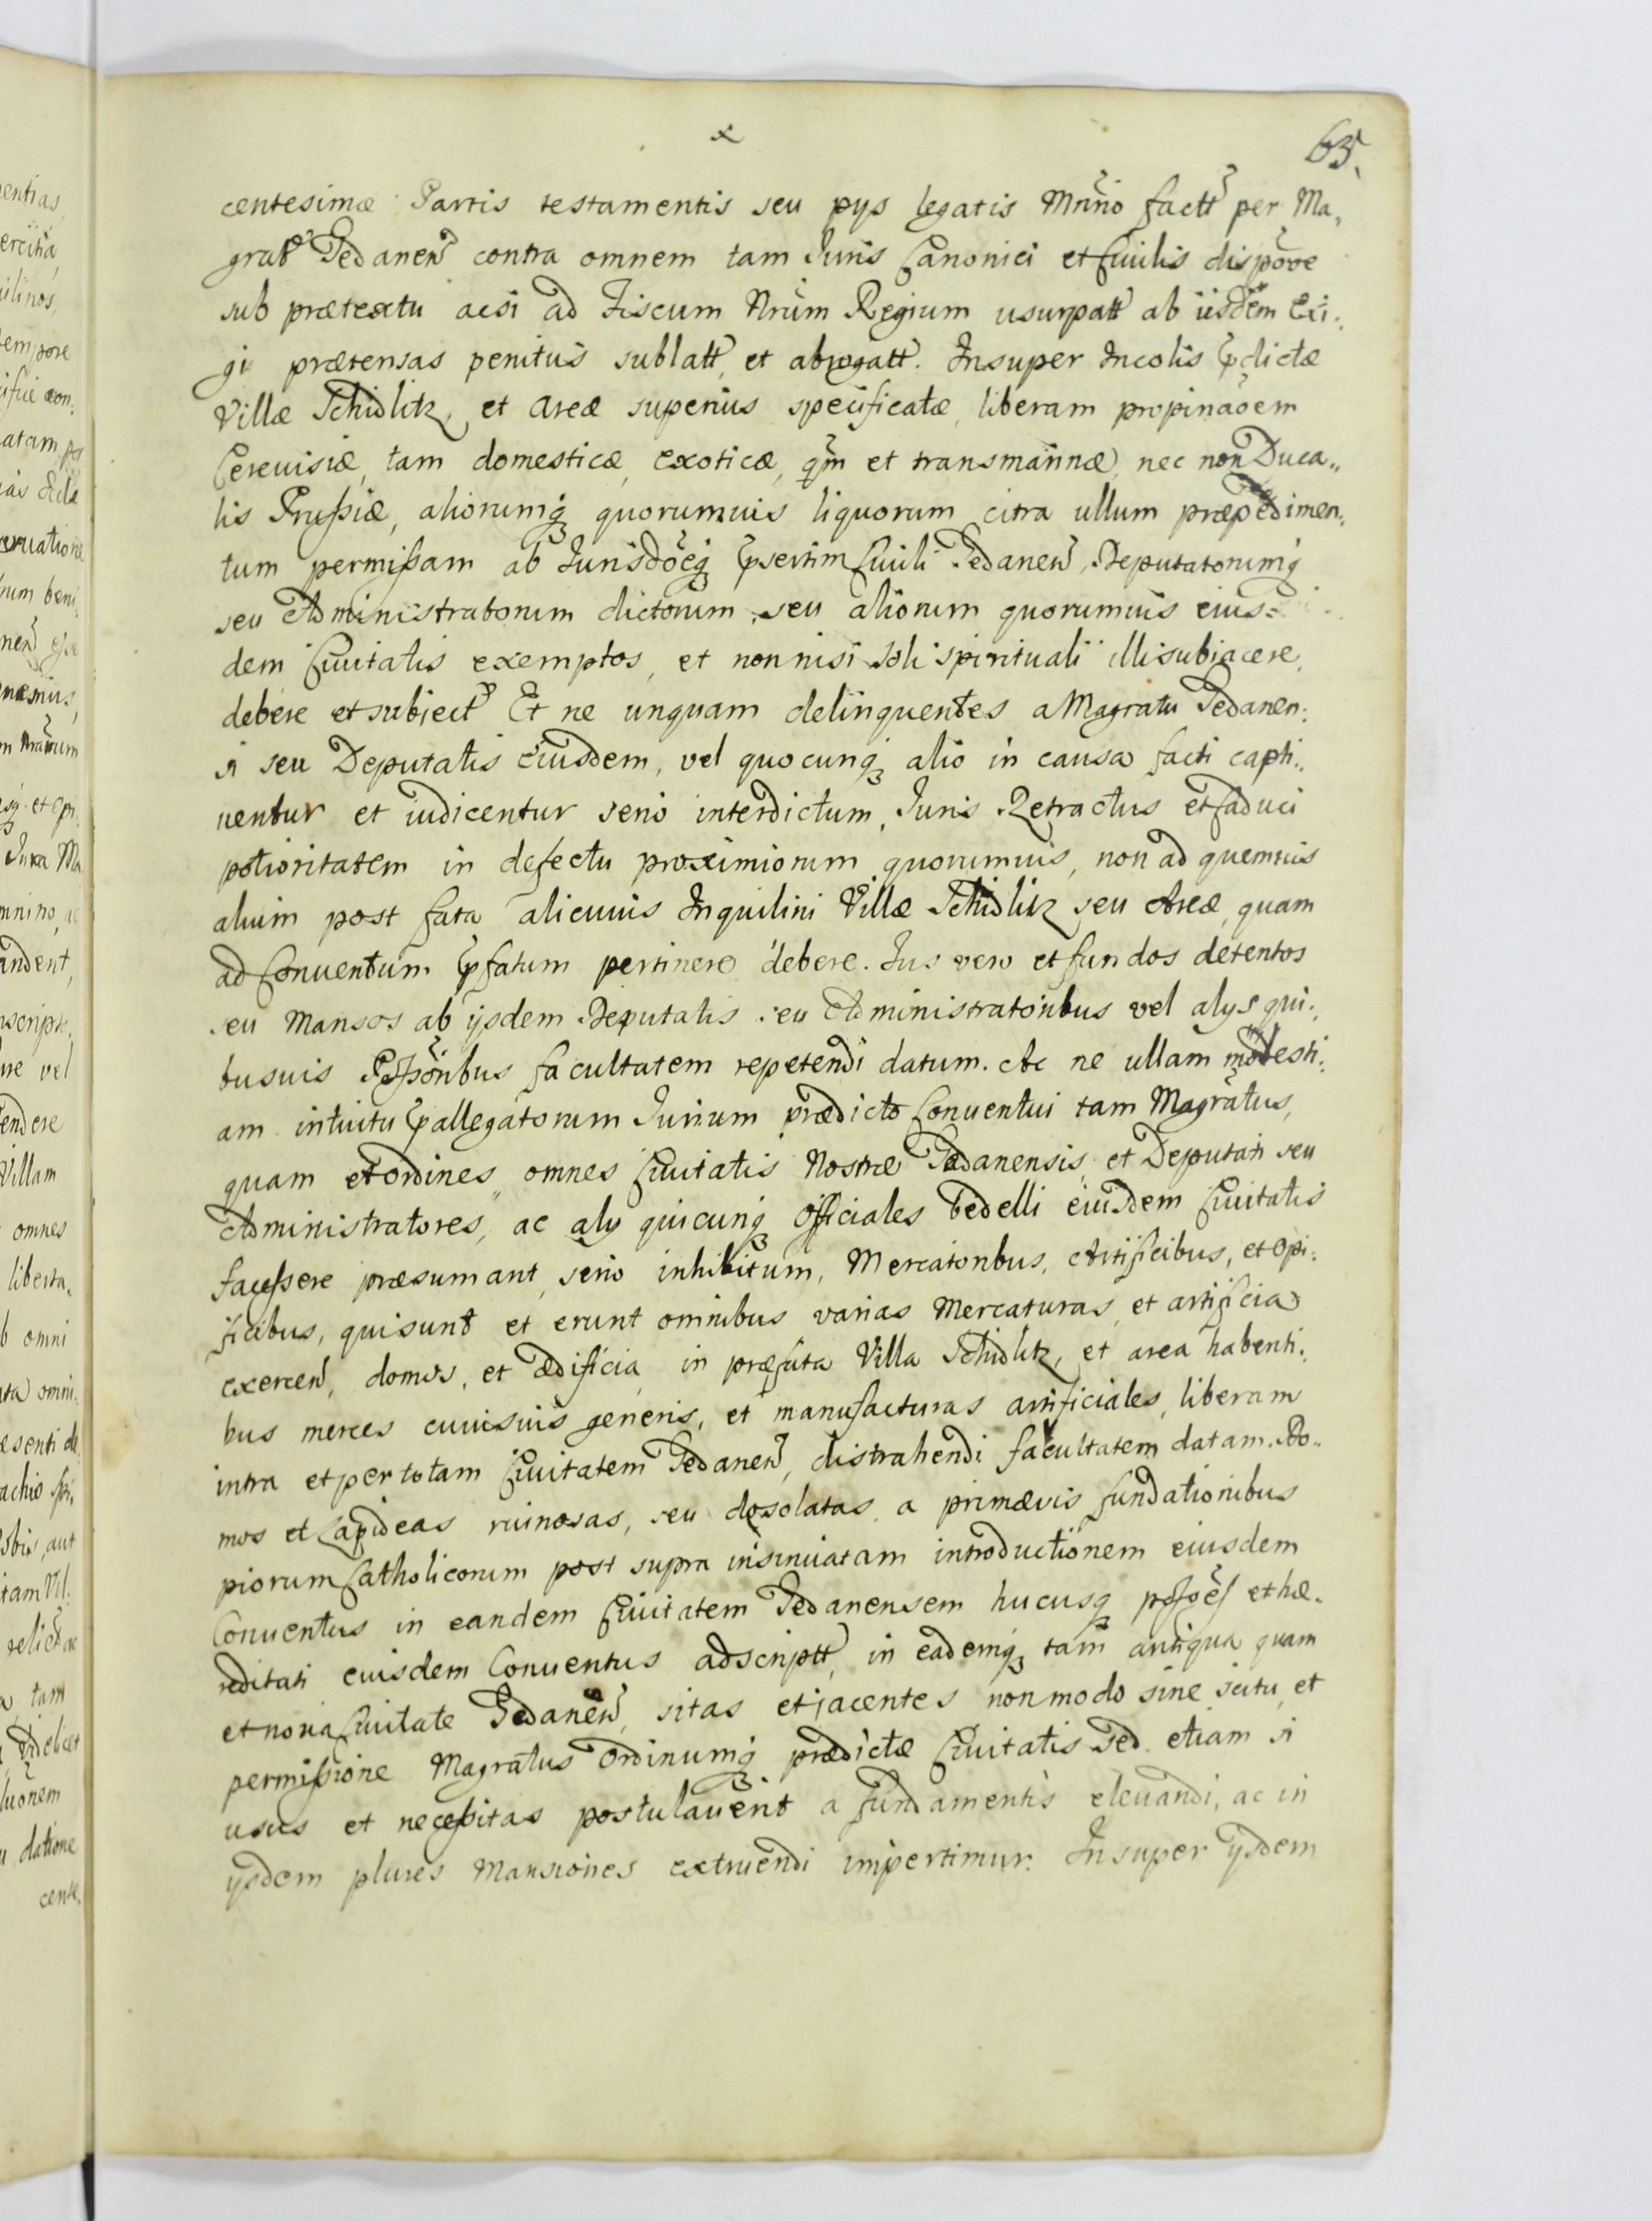 x
63.
centesimæ Partis testamentis seu pys legatis Mnino factt per Ma,
grat Gedanen contra omnem tam Juris Canonici et Ciuilis dispoõe
sub prætextu acsi ad Fiscum Nrum Regium usurpatt ab iisdem Exi,
gi prætensas penitus sublatt, et abrogatt. Insuper Incolis pdictæ
Villæ Schidlitz, et Areæ superius specificatæ, liberam propinaõem
Cereuisiæ, tam domesticæ, exoticæ, qm et transmarinæ, nec non Duca,,
lis Prußiæ, aliorumq quorumuis liquorum citra ullum præpedimen,
tum permißam ab Jurisdõeq psertim Ciuili Gedanen, Deputatorumq
seu Administratorum dictorum, seu aliorum quorumuis eius=
dem Ciuitatis exemptos, et non nisi soli spirituali illi subiacere,
debere et subiect Et ne unquam delinquentes a Magratu Gedanen,
si seu Deputatis eiusdem, vel quocunq alio in causa facti capti,,
uentur et iudicentur serio interdictum, Juris Retractus et Caduci
potioritatem in defectu proximiorum quorumuis, non ad quemuis
alium post fata alicuius Inquilini Villæ Schidlitz seu Areæ, quam
ad Conuentum pfatum pertinere debere. Jus vero et fundos detentos
seu Mansos ab ysdem Deputatis seu Administratoribus vel alys qui,
busuis Possõribus facultatem repetendi datum. Ac ne ullam molesti,
am intuitu pallegatorum Jurium prædicto Conuentui tam Magratus,
quam et Ordines omnes Ciuitatis Nostræ Gedanensis, et Deputati seu
Administratores, ac aly quicunq Officiales Bedelli eiusdem Ciuitatis
faceßere præsumant, serio inhibitum, Mercatoribus, Artificibus, et Opi,
ficibus, qui sunt et erunt omnibus varias Mercaturas, et artificia
exercen, domos, et ædificia in præfata Villa Schidlitz, et area habenti,
bus merces cuiusuis generis, et manufacturas artificiales, liberam
intra et per totam Ciuitatem Gedanen, distrahendi facultatem datam. Do,,
mos et Lapideas ruinosas, seu desolatas a primævis fundationibus
piorum Catholicorum post supra insinuatam introductionem eiusdem
Conuentus in eandem Ciuitatem Gedanensem hucusq possões et hæ,
reditati eiusdem Conuentus adscriptt, in eademq tam antiqua quam
et noua Ciuitate Gedanen, sitas et jacentes non modo sine scitu, et
permißione Magratus Ordinumq prædictæ Ciuitatis sed etiam si
usus et neceßitas postulauerit a fundamentis eleuandi, ac in
ysdem plures Mansiones extruendi impertimur. Insuper ysdem